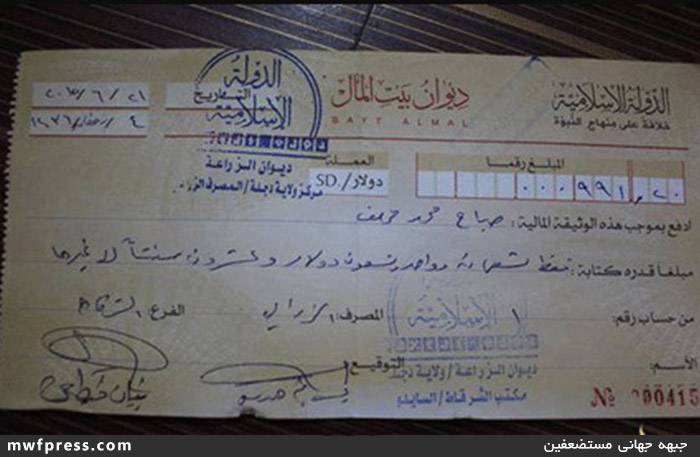 الدولة الإسلامية
خلافة على منهاج النبوة
ديوان بيت المال
BAYT ALMAL
الدولة الإسلامية
ديوان الزراعة
مركز ولاية دجلة / المصرف
التاريخ
٢١ / ٦ / ٢٠١٥
٤ / رمضان / ١٤٣٦
المبلغ رقما
٠٠٠٩٩١,٢٠
العملة
دولار /.SD
ادفع بموجب هذه الوثيقة المالية : صباح محمد خلف
مبلغا قدره كتابة : فقط تسعمائة وواحد وتسعون دولار وعشرون سنتاً لا غيرها
من حساب رقم : ١ المصرف : الزراعي الفرع : الشرقاط
الإسلامية
ديوان الزراعة / ولاية دجلة
مكتب الشرقاط / السايلو
الاسم :
التوقيع :
№ 000415
mwfpress.com
جبهه جهانی مستضعفین